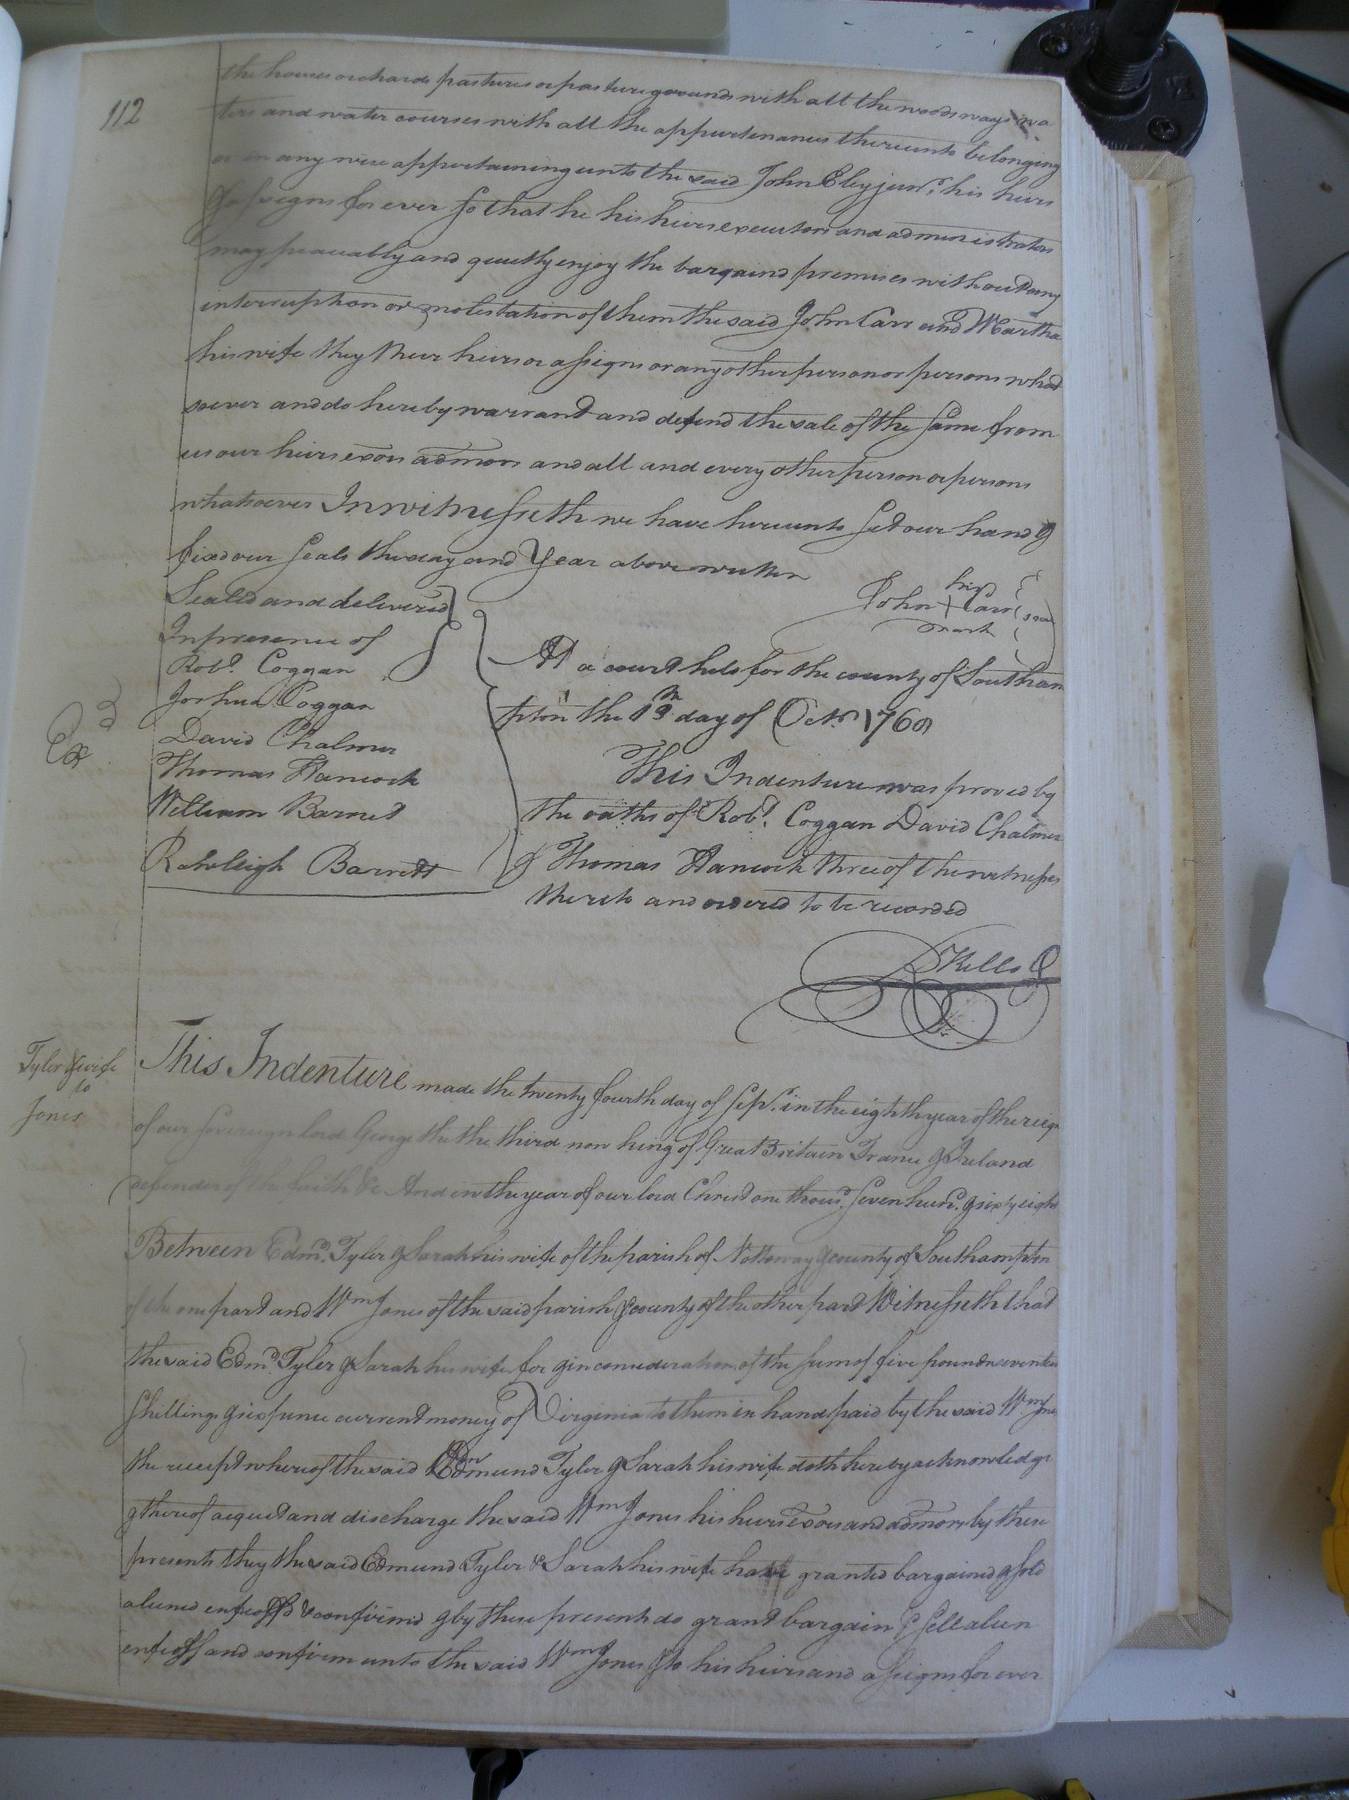 112
the houses orchards pastures or pasture grounds with all the woods ways wa
ters and water courses with all the appurtenances thereunto belonging
or in any wise appertaining unto the said John Eley junr. his heirs
& assigns for ever so that he his heirs executors and administrators
may peaceably and quietly enjoy the bargaind premises without any
interruption or molestation of them the said John Carr and Martha
his wife they their heirs or assigns or any other person or persons what
soever and do hereby warrand and defend the sale of the same from
us our heirs exors admors and all and every other person or persons
whatsoever In witnesseth we have hereunto set our hand &
fixed our seals the day and year above written
Sealed and delivered
In presence of
Robt. Coggan
Joshua Coggan
David Chalmer
Thomas Hancock
William Barnet
Rahleigh Barnett
his
John + Carr seal
mark
Exd
At a court held for the county of Southam
pton the 13th day of Octr. 1768
This Indenture was proved by
the oaths of Robt. Coggan David Chalmer
& Thomas Hancock three of the witnesses
thereto and ordered to be recorded
Kello
Tyler & wife
to
Jones
This Indenture made the twenty fourth day of Sepr. in the eighth year of the reign
of our sovereign lord George the the third now king of Great Britain France & Ireland
defender of the faith &c And in the year of our lord Christ one thousd. seven hund. & sixty eight
Between Edmd. Tyler & Sarah his wife of the parish of Nottoway & county of Southampton
of the one part and Wm Jones of the said parish & county of the other part Witnesseth that
the said Edmd. Tyler & Sarah his wife for & in consideration of the sum of five pounds seventeen
shillings & six pence current money of Virginia to them in hand paid by the said Wm Jones
the receipt whereof the said Edmund Tyler & Sarah his wife doth hereby acknowledge
& thereof acquit and discharge the said Wm Jones his heirs exors and admors by these
presents they the said Edmund Tyler & Sarah his wife have granted bargained & sold
aliened enfeoffd & confirmd & by these presents do grant bargain & sell alien
enfeoff and confirm unto the said Wm Jones & to his heirs and assigns for ever